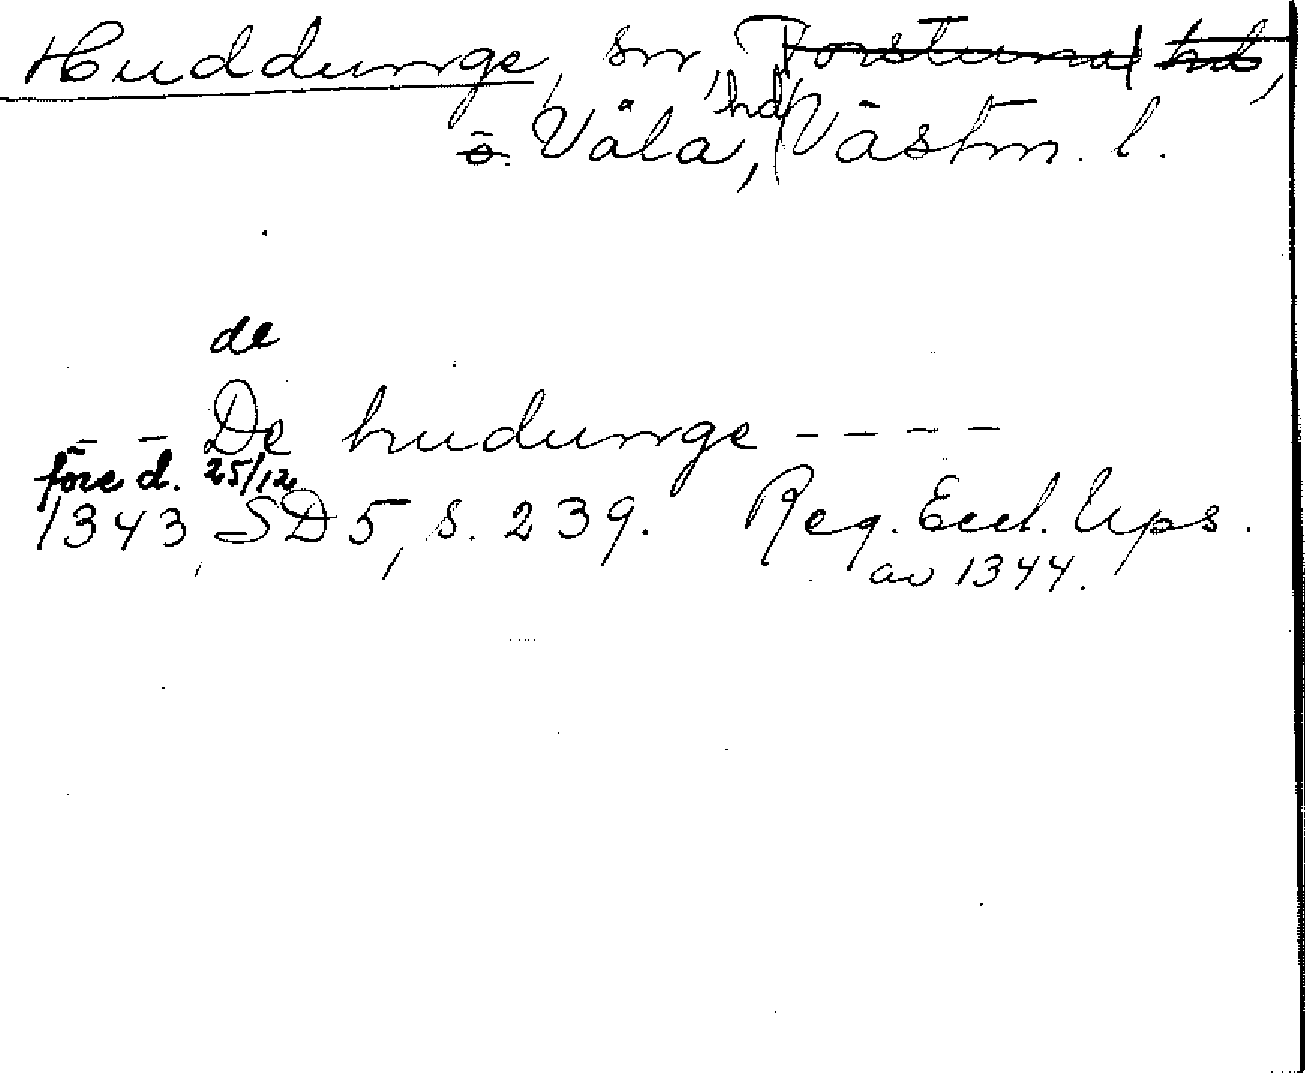 Huddunge, sn, Torstuna hd,
ö. Våla, hd Västm. l.
de
- - De hudunge - - - -
före d. 25/12
1343, SD 5, s. 239. Reg. Eccl. Ups.
av 1344.